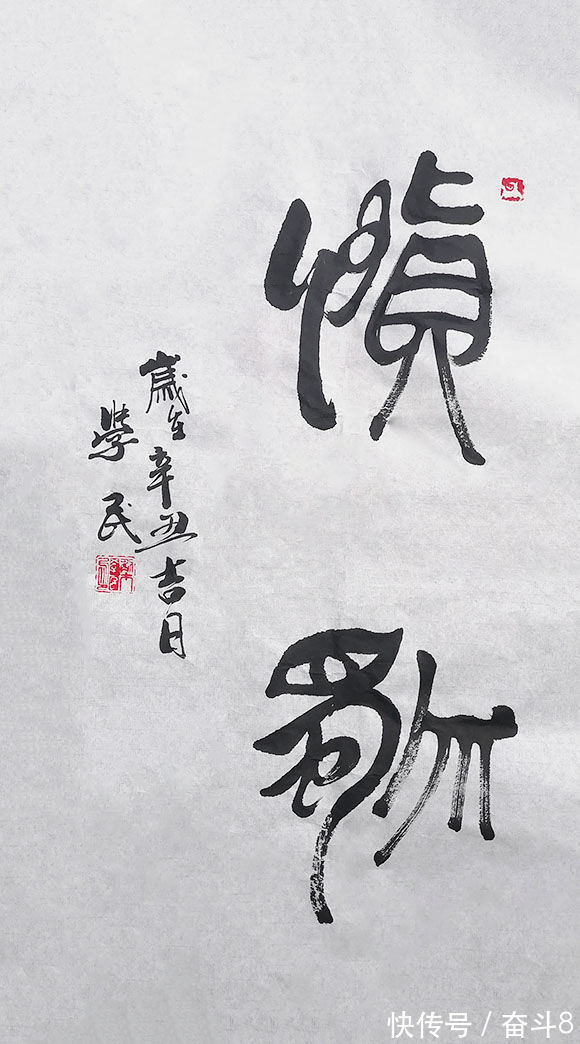 慎獨
歲在辛丑吉月
學民
快传号 / 奋斗8